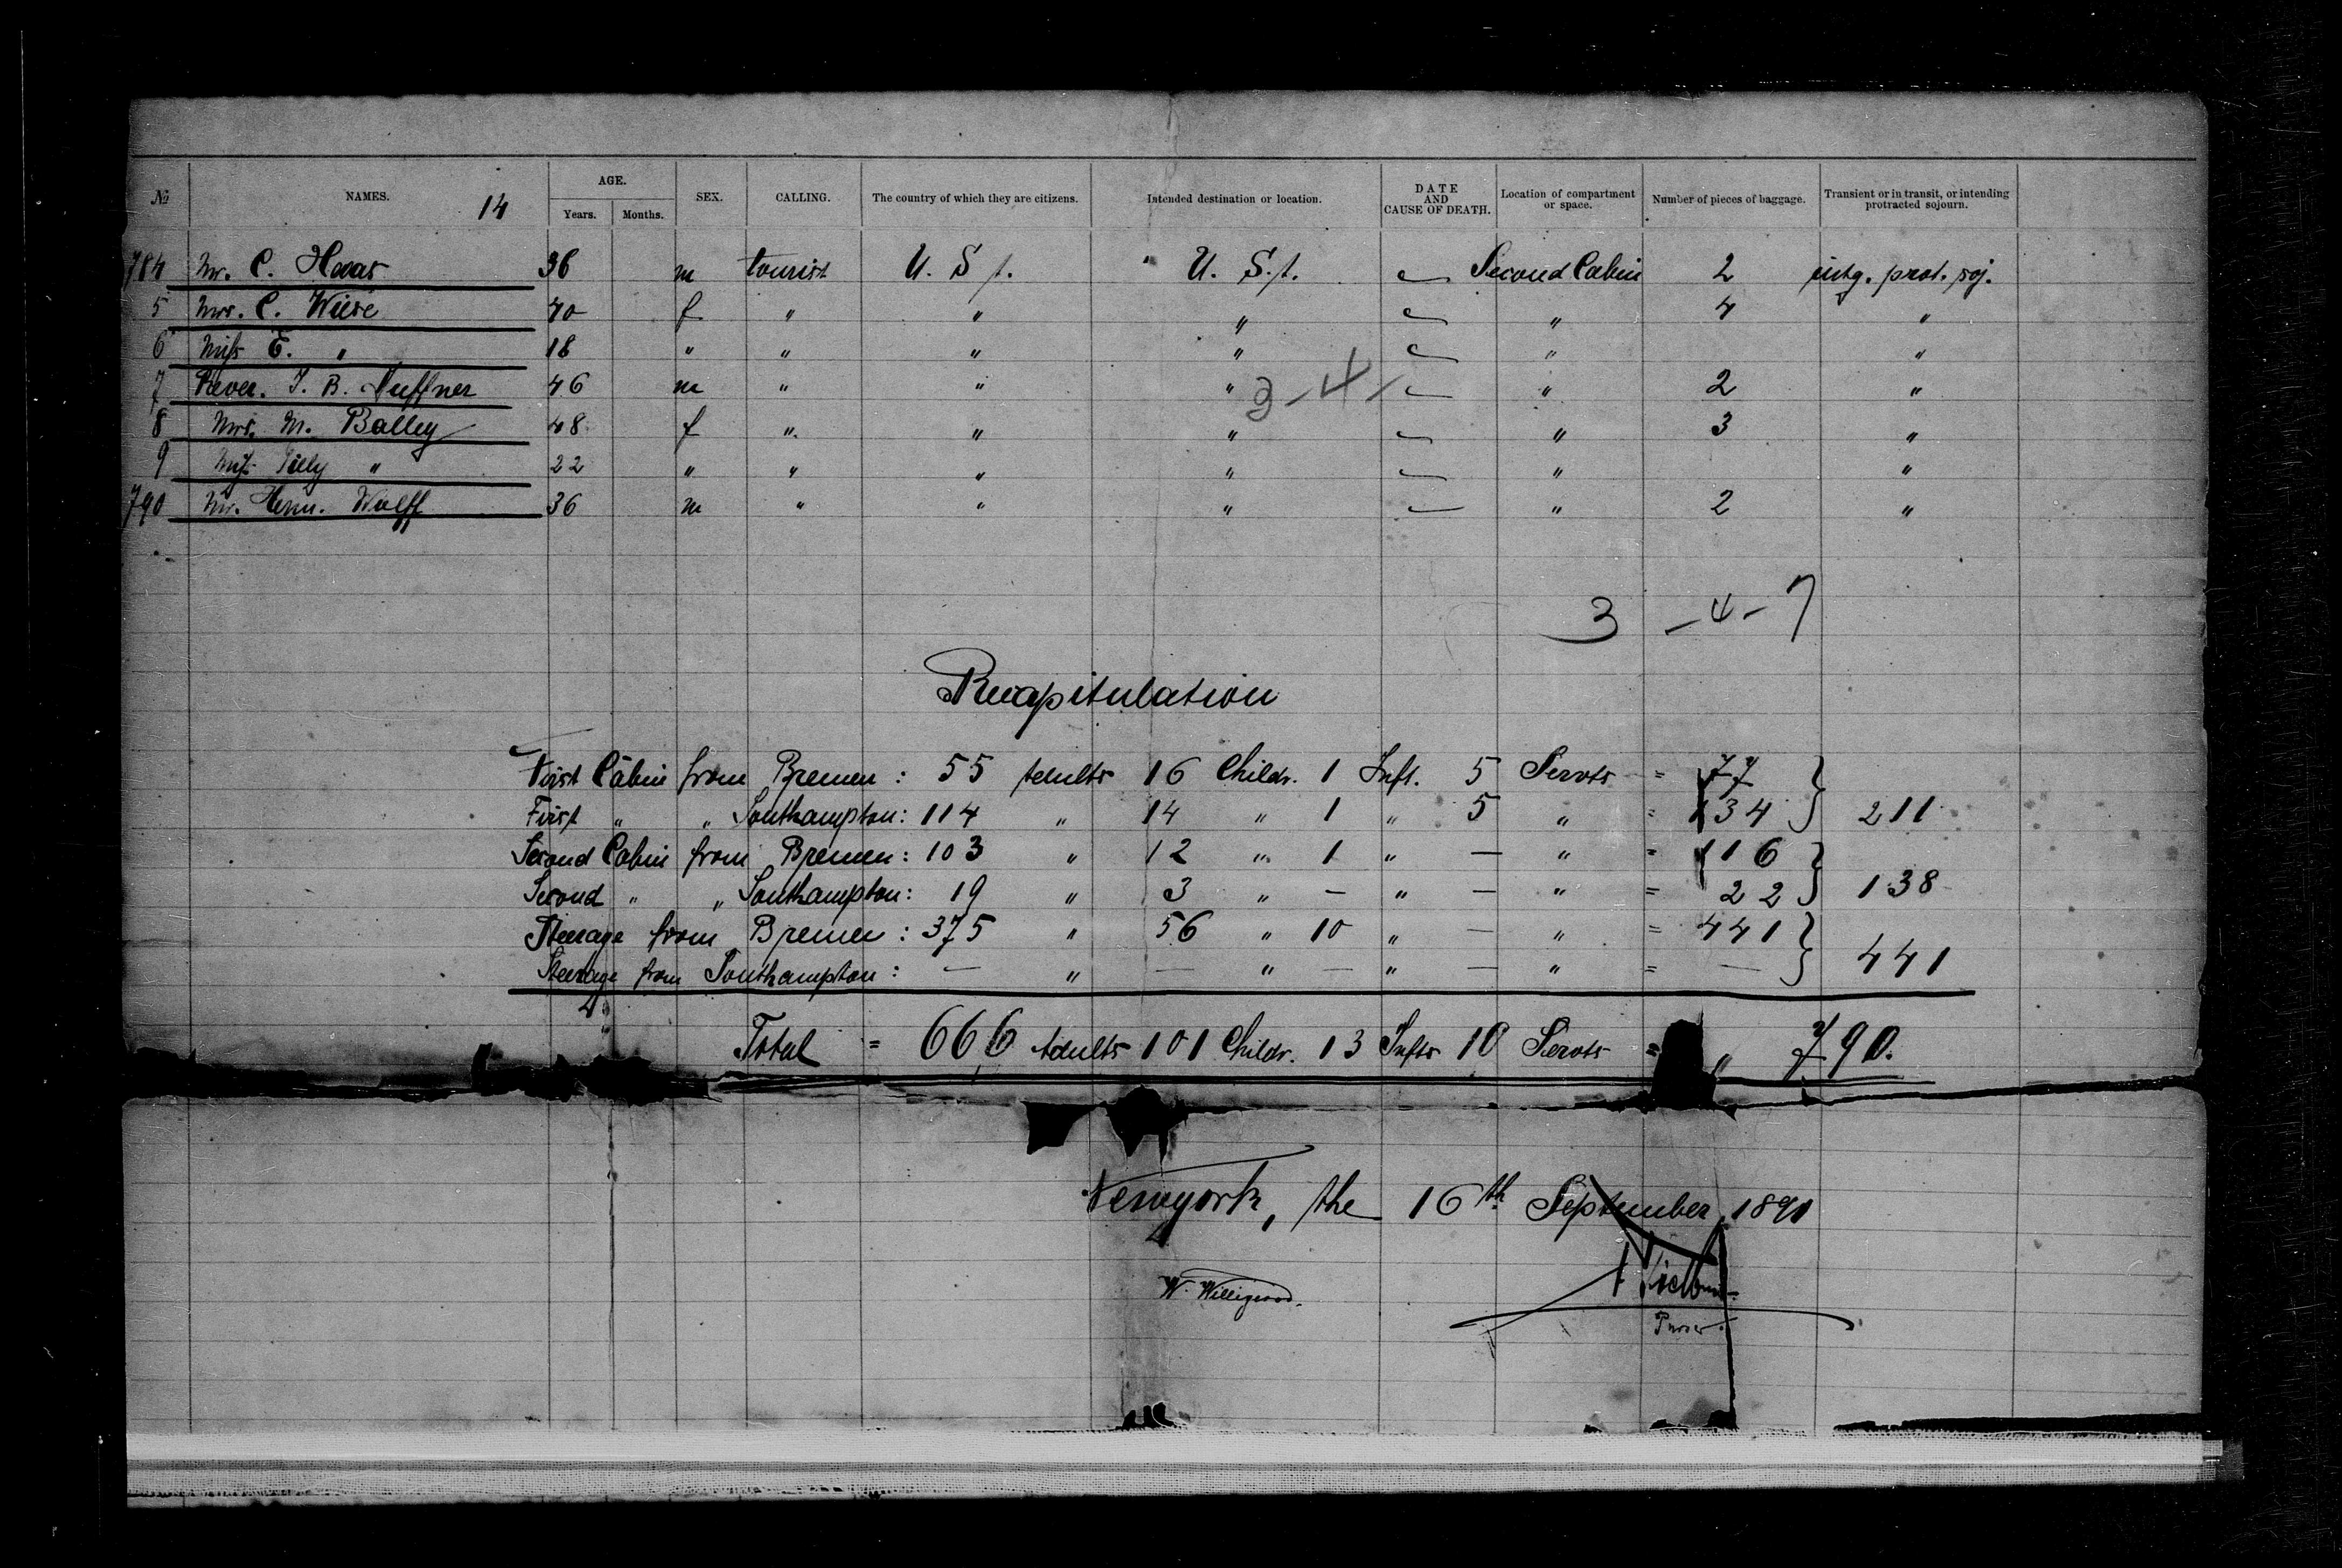 № NAMES. 14 AGE. Years. Months. SEX. CALLING. The country of which they are citizens. Intended destination or location. DATE AND CAUSE OF DEATH. Location of compartment or space. Number of pieces of baggage. Transient or in transit, or intending protracted sojourn.
784 Mr. C. Haas 36 m tourist U. S t. " U. S. t. — Second Cabin 2 intg. prot. soj.
5 Mrs. C. Wiese 40 f " " " — " 4 "
6 Miss E. " 18 " " " " — " "
7 Rever. J. B. Nuffner 46 m " " " — " 2 "
3 - 4 -
8 Mrs. M. Balley 48 f " " " — " 3 "
9 Miss Tilly " 22 " " " " — " "
790 Mr. Herm. Wolff 36 m " " " — " 2 "
3 - 4 - 7
Recapitulation
First Cabin from Bremen : 55 Adults 16 Childr. 1 Inft. 5 Servts = 77
First " " Southampton : 114 " 14 " 1 " 5 " = 134 } 211
Second Cabin from Bremen : 103 " 12 " 1 " — " = 116
Second " " Southampton : 19 " 3 " — " — " = 22 } 138
Steerage from Bremen : 375 " 56 " 10 " — " = 441
Steerage from Southampton : — " — " — " — " = — } 441
Total = 666 Adults 101 Childr. 13 Infts 10 Servts = " 790.
Newyork, the 16th September 1891
W. Willigerod.
Purser.